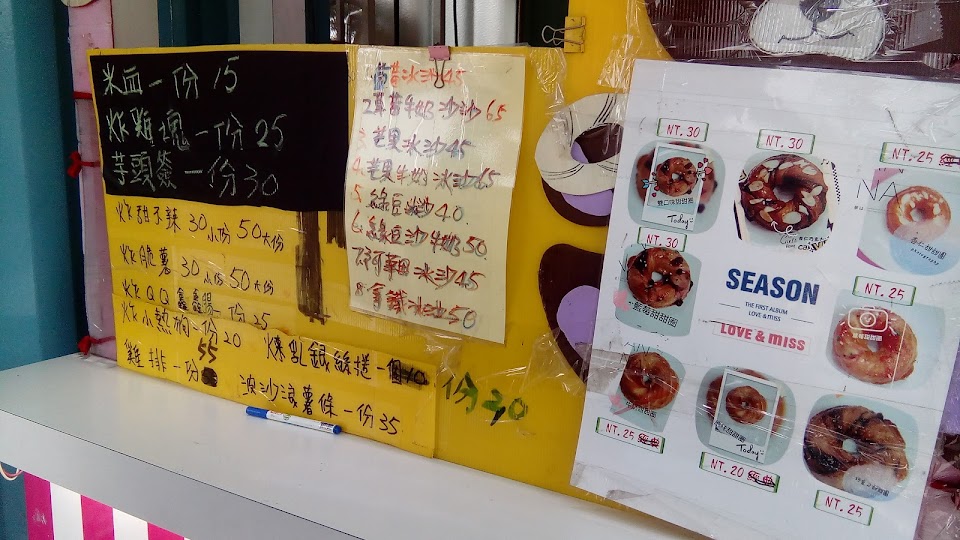 米血一份15
炸雞塊一份25
芋頭簽一份30
炸甜不辣30小份50大份
炸脆薯30小份50大份
炸QQ鑫鑫腸一份25
炸小熱狗一份20
雞排一份55
煉乳銀絲捲一個10
波浪薯條一份35
份30
冰沙45
2草苺牛奶沙沙65
3.芒果冰沙45
4.芒果牛奶冰沙65
5.綠豆冰沙40
6.綠豆沙牛奶50
7.阿華田冰沙45
8.拿鐵冰沙50
NT. 30
NT. 30
NT. 25
Today
NT. 30
SEASON
THE FIRST ALBUM
LOVE & MISS
LOVE & MISS
藍莓甜甜圈
NT. 25
NT. 25
NT. 20
Today
NT. 25